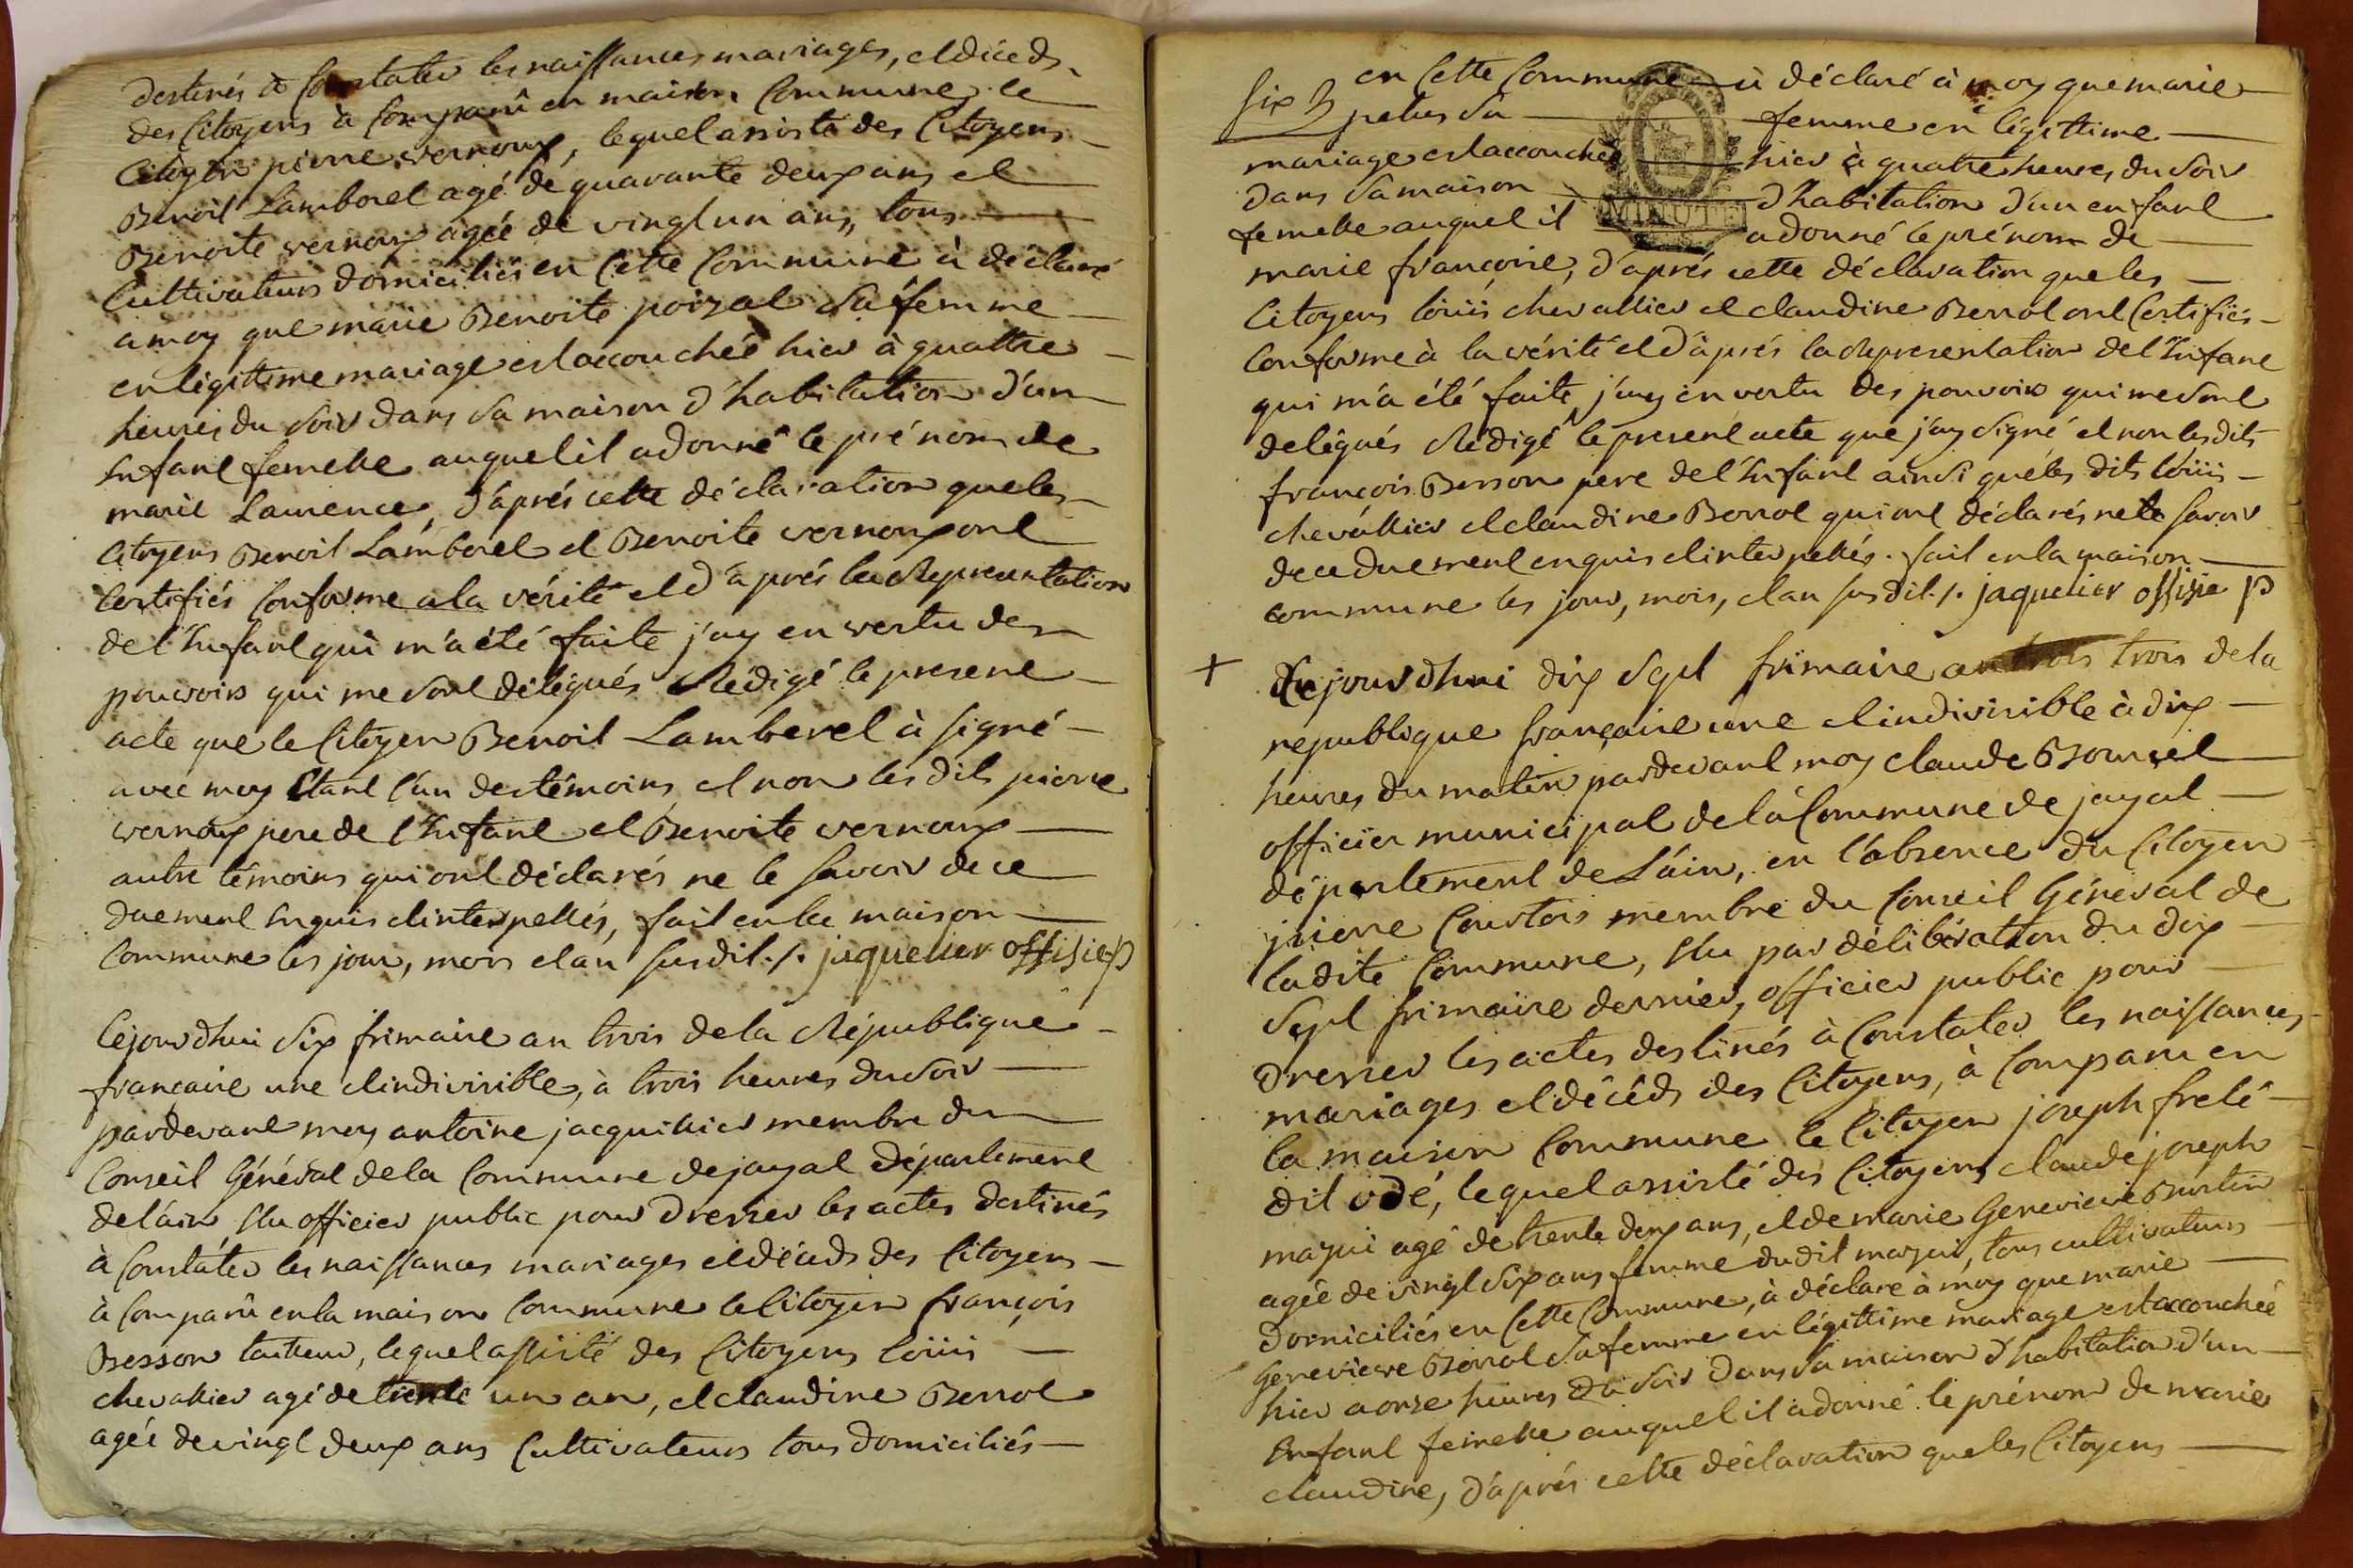 destinés à Constater les naissances mariages, et décéds
des Citoyens à Comparû en maison Commune le
Citoyen pierre vernoux, lequel assisté des Citoyens
Benoit Lamborel agé de quarante deux ans et
Benoite vernoux agée de vingt un ans, tous
Cultivateurs domiciliés en Cette Commune à déclaré
a moy que marie Benoite poizat Sa femme
en légittime mariage est accouchée hier à quattre
heures du Soir dans Sa maison d'habitation d'un
Enfant femelle auquel il a donné le prénom de
marie Laurence, d'aprés cette déclaration que les
Citoyens Benoit Lamborel et Benoite vernoux ont
Certifiés Conforme a la vérité et d'aprés la Representation
de l'Enfant qui m'a été faite j'ay en vertu des
pouvoirs qui me Sont délégués Rédigé le present
acte que le Citoyen Benoit Lamberel à signé
avec moy Etant l'un des témoins, et non les dits pierre
vernoux pere de l'Enfant et Benoite vernoux
autre témoins qui ont déclarés ne le savoir de ce
duement Enquis et interpellés, fait en la maison
Commune les jour, mois et an susdit ./. jaquelier offisie p
Cejourdhui Six frimaire an trois de la République
française une et indivisible, à trois heures du Soir
pardevant moy antoine jacquillier membre du
Conseil Général de la Commune de jayat département
de l'ain, Elu officier public pour dresser les actes destinés
à Constater les naissances mariages et décéds des Citoyens
à Comparû en la maison Commune le Citoyen françois
Besson tailleur, lequel assisté des Citoyens Louis
chevallier agé de trente un an, et claudine Berrot
agée de vingt deux ans Cultivateurs tous domiciliés
six
en Cette Commune à déclaré à moy que marie
petus Sa femme en légittime
mariage est accouchée hier à quatre heures du Soir
dans Sa maison d'habitation d'un enfant
femelle auquel il a donné le prénom de
marie françoise, d'aprés cette déclaration que les
Citoyens Louis chevallier et claudine Berrot ont Certifiés
Conforme à la vérité et d'aprés la Representation de l'Enfant
qui m'a été faite j'ay en vertu des pouvoirs qui me Sont
delégués Rédigé le present acte que j'ay Signé et non les dits
françois Besson pere de l'Enfant ainsi que les dits Louis
chevallier et claudine Berrot qui ont déclarés ne le savoir
de ce duement enquis et interpellés. fait en la maison
commune les jour, mois, et an susdit ./. jaquelier offisie p
+ Cejourdhui dix Sept frimaire an trois de la
republique française une et indivisible à dix
heures du matin pardevant moy claude
officier municipal de la Commune de jayat
département de L'ain, en l'absence du Citoyen
pierre Courtois membre du Conseil Géneral de
ladite Commune, Elu par délibération du dix
Sept frimaire dernier, officier public pour
dresser les actes destinés à Constater les naissances
mariages et décéds des Citoyens, à Comparu en
la maison Commune le Citoyen joseph freté
dit odé, lequel assisté des Citoyens claude joseph
mazui agé de trente deux ans, et de marie Genevieve Burtin
agée de vingt Six ans femme dudit mazui, tous cultivateurs
domiciliés en Cette Commune, à déclare à moy que marie
Genevieve Berrot Sa femme en légittime mariage est accouchée
hier a onze heures du Soir dans Sa maison d'habitation d'un
Enfant femelle auquel il a donné le prénom de marie
claudine, d'aprés cette déclaration que les Citoyens
MINUTE